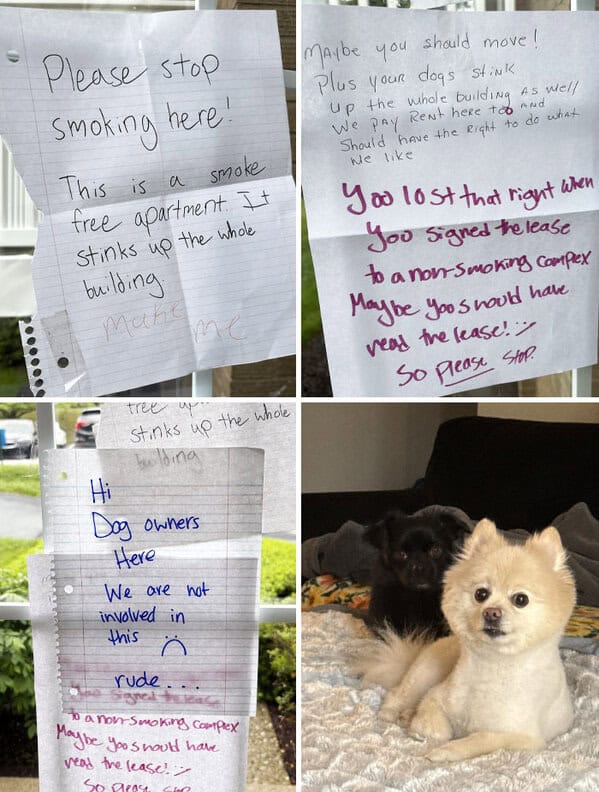 Please stop
smoking here!
This is a smoke
free apartment. It
stinks up the whole
building
make me
Maybe you should move!
Plus your dogs stink
up the whole building as well
We pay rent here too and
Should have the right to do what
we like
You lost that right when
you signed the lease
to a non-smoking complex
Maybe you should have
read the lease! :-)
So please stop.
free
stinks up the whole
building
Hi
Dog owners
Here
We are not
involved in
this :(
rude...
You signed the lease
to a non-smoking complex
Maybe you should have
read the lease! :-)
So please stop